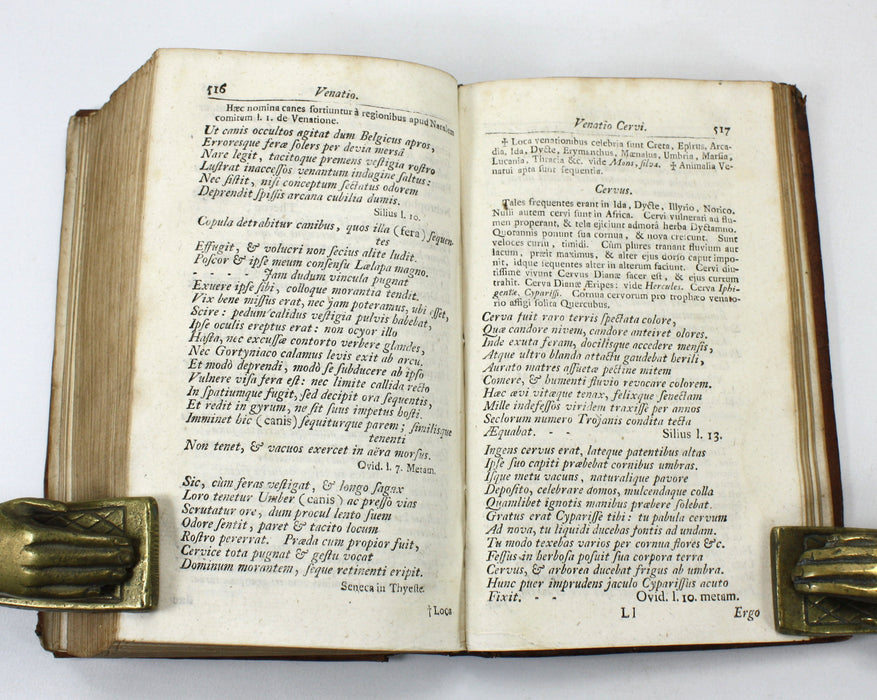 516 Venatio.
Hæc nomina canes sortiuntur à regionibus apud Natalem
comitum l. 1. de Venatione.
Ut canis occultos agitat dum Belgicus apros,
Erroresque feræ solers per devia mersâ
Nare legit, tacitoque premens vestigia rostro
Lustrat inaccessos venantum indagine saltus:
Nec sistit, nisi conceptum sectatus odorem
Deprendit spissis arcana cubilia dumis.
Silius l. 10.
Copula detrahitur canibus, quos illa (fera) sequen-
tes
Effugit, & volucri non secius alite ludit.
Poscor & ipse meum consensu Lælapa magno.
- - - - - Jam dudum vincula pugnat
Exuere ipse sibi, colloque morantia tendit.
Vix bene missus erat, nec jam poteramus, ubi esset,
Scire: pedum calidus vestigia pulvis habebat,
Ipse oculis ereptus erat: non ocyor illo
Hasta, nec excussæ contorto verbere glandes,
Nec Gortyniaco calamus levis exit ab arcu.
Et modò deprendi, modò se subducere ab ipso
Vulnere visa fera est: nec limite callida recto
In spatiumque fugit, sed decipit ora sequentis,
Et redit in gyrum, ne sit suus impetus hosti.
Imminet hic (canis) sequiturque parem; similisque
tenenti
Non tenet, & vacuos exercet in aëra morsus.
Ovid. l. 7. Metam.
Sic, cùm feras vestigat, & longo sagax
Loro tenetur Umber (canis) ac presso vias
Scrutatur ore, dum procul lento suem
Odore sentit; paret & tacito locum
Rostro pererrat. Præda cum propior fuit,
Cervice tota pugnat & gestu vocat
Dominum morantem, seque retinenti eripit.
Seneca in Thyeste.
† Loca
Venatio Cervi. 517
‡ Loca venationibus celebria sunt Creta, Epirus, Arca-
dia, Ida, Dycte, Erymanthus, Mænalus, Umbria, Marsia,
Lucania, Thracia &c. vide Mons, silva. ‡ Animalia Ve-
natui apta sunt sequentia.
Cervus.
Tales frequentes erant in Ida, Dycte, Illyrio, Norico.
Nulli autem cervi sunt in Africa. Cervi vulnerati ad flu-
men properant, & tela ejiciunt admotâ herba Dyctamno.
Quotannis ponunt sua cornua, & nova crescunt. Sunt
veloces cursu, timidi. Cùm plures tranant fluvium aut
lacum, præit maximus, & alter ejus dorso caput impo-
nit, idque sequentes alter in alterum faciunt. Cervi diu-
tissimè vivunt Cervus Dianæ sacer est, & ejus currum
trahit. Cerva Dianæ Æripes: vide Hercules. Cerva Iphi-
geniæ, Cyparissi. Cornua cervorum pro trophæo venato-
rio affigi solita Quercubus.
Cerva fuit raro terris spectata colore,
Quæ candore nivem, candore anteiret olores.
Inde exuta feram, docilisque accedere mensis,
Atque ultro blanda attactu gaudebat herili,
Aurato matres assuetæ pectine mitem
Comere, & humenti fluvio revocare colorem.
Hæc ævi vitæque tenax, felixque senectam
Mille indefessos viridem traxisse per annos
Seclorum numero Trojanis condita tecta
Æquabat. - - Silius l. 13.
Ingens cervus erat, lateque patentibus altas
Ipse suo capiti præbebat cornibus umbras.
Isque metu vacuus, naturalique pavore
Deposito, celebrare domos, mulcendaque colla
Quamlibet ignotis manibus præbere solebat.
Gratus erat Cyparisse tibi: tu pabula cervum
Ad nova, tu liquidi ducebas fontis ad undam.
Tu modo texebas varios per cornua flores &c.
Fessus in herbosa posuit sua corpora terra
Cervus, & arborea ducebat frigus ab umbra.
Hunc puer imprudens jaculo Cyparissus acuto
Fixit. - - Ovid. l. 10. metam.
L l Ergo